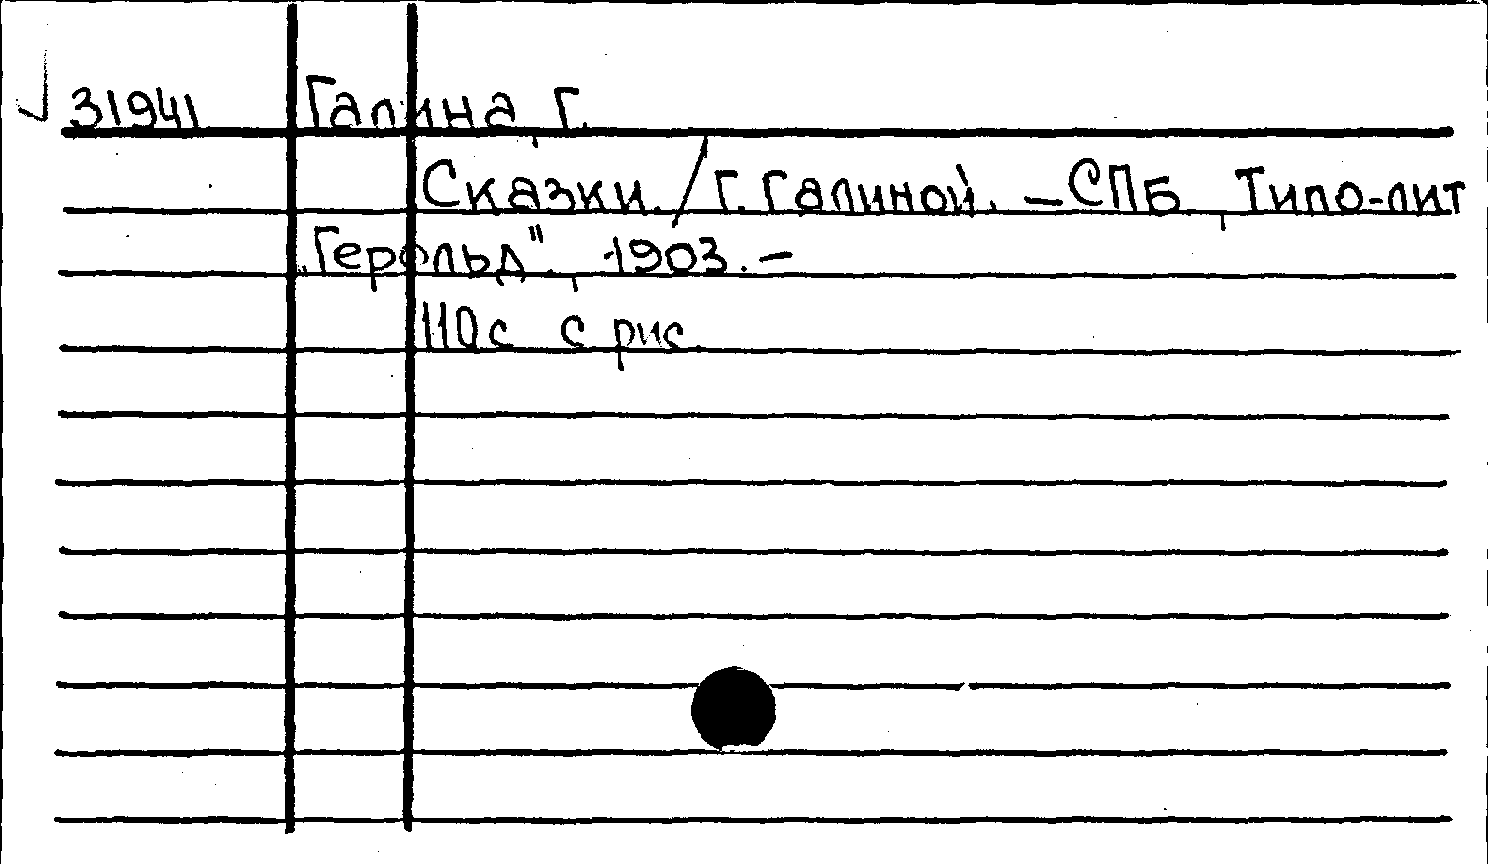 31941 Галина, Г.
Сказки. / Г. Галиной. – СПб, Типо-лит
„Герольд", 1903. –
110 с с рис.